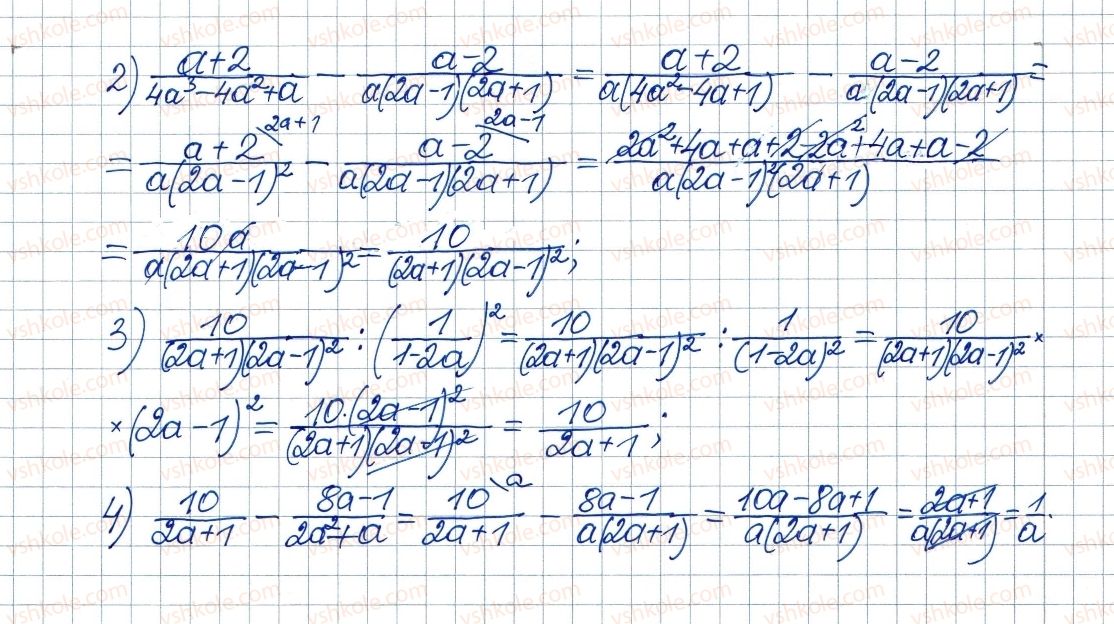 2) (a+2)/(4a³-4a²+a) - (a-2)/(a(2a-1)(2a+1)) = (a+2)/(a(4a²-4a+1)) - (a-2)/(a(2a-1)(2a+1)) =
= (a+2)\2a+1/(a(2a-1)²) - (a-2)\2a-1/(a(2a-1)(2a+1)) = (2a²+4a+a+2-2a²+4a+a-2)/(a(2a-1)²(2a+1))
= 10a/(a(2a+1)(2a-1)²) = 10/((2a+1)(2a-1)²);
3) 10/((2a+1)(2a-1)²) : (1/(1-2a))² = 10/((2a+1)(2a-1)²) : 1/(1-2a)² = 10/((2a+1)(2a-1)²) ×
× (2a-1)² = 10·(2a-1)²/((2a+1)(2a-1)²) = 10/(2a+1);
4) 10/(2a+1) - (8a-1)/(2a²+a) = 10\a/(2a+1) - (8a-1)/(a(2a+1)) = (10a-8a+1)/(a(2a+1)) = (2a+1)/(a(2a+1)) = 1/a.
vshkole.com